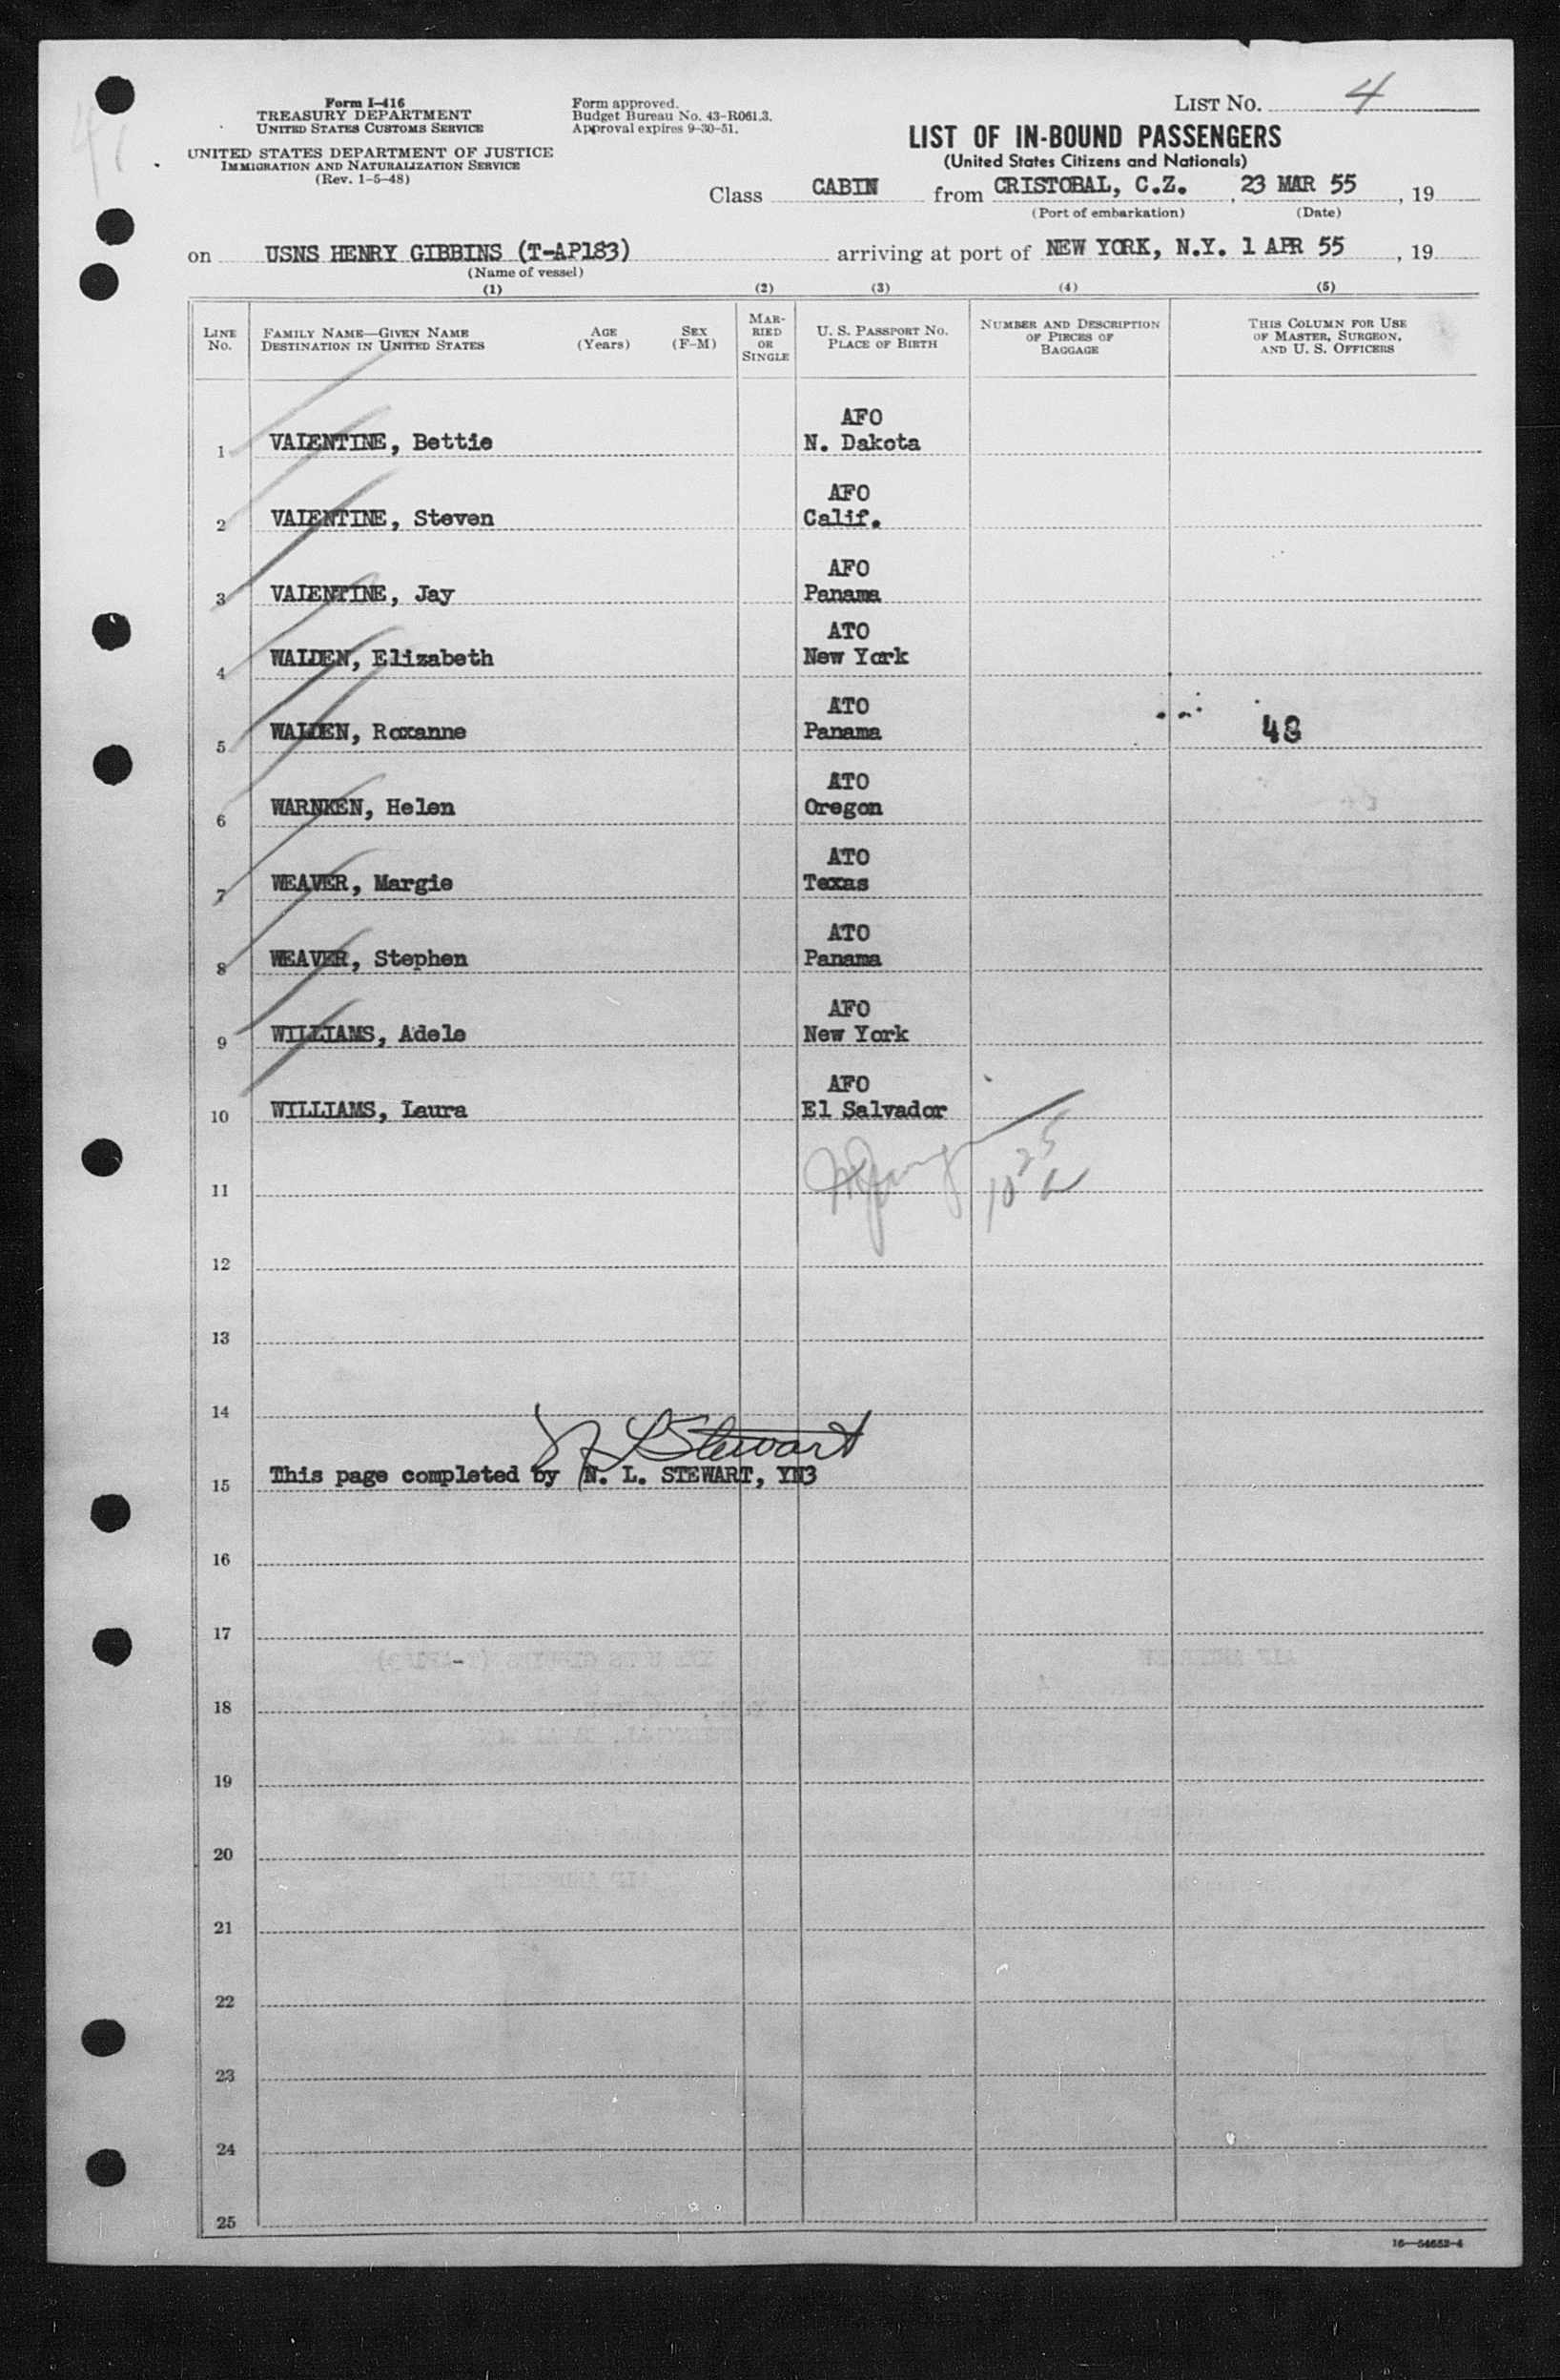 Form I-416
TREASURY DEPARTMENT
UNITED STATES CUSTOMS SERVICE
UNITED STATES DEPARTMENT OF JUSTICE
IMMIGRATION AND NATURALIZATION SERVICE
(Rev. 1-5-48)
Form approved.
Budget Bureau No. 43-R061.3.
Approval expires 9-30-51.
LIST NO. 4
LIST OF IN-BOUND PASSENGERS
(United States Citizens and Nationals)
Class CABIN from CRISTOBAL, C.Z. , 23 MAR 55 , 19
(Port of embarkation) (Date)
on USNS HENRY GIBBINS (T-AP183) arriving at port of NEW YORK, N.Y. 1 APR 55 , 19
(Name of vessel)
(1) (2) (3) (4) (5)
LINE NO.
FAMILY NAME—GIVEN NAME
DESTINATION IN UNITED STATES
AGE
(Years)
SEX
(F-M)
MAR-
RIED
OR
SINGLE
U. S. PASSPORT NO.
PLACE OF BIRTH
NUMBER AND DESCRIPTION
OF PIECES OF
BAGGAGE
THIS COLUMN FOR USE
OF MASTER, SURGEON,
AND U. S. OFFICERS
AFO
1 VALENTINE, Bettie N. Dakota
AFO
2 VALENTINE, Steven Calif.
AFO
3 VALENTINE, Jay Panama
ATO
4 WALDEN, Elizabeth New York
ATO
5 WALDEN, Roxanne Panama 48
ATO
6 WARNKEN, Helen Oregon
ATO
7 WEAVER, Margie Texas
ATO
8 WEAVER, Stephen Panama
AFO
9 WILLIAMS, Adele New York
AFO
10 WILLIAMS, Laura El Salvador
11
12
13
14
N L Stewart
15 This page completed by N. L. STEWART, YN3
16
17
18
19
20
21
22
23
24
25
16—54652-4